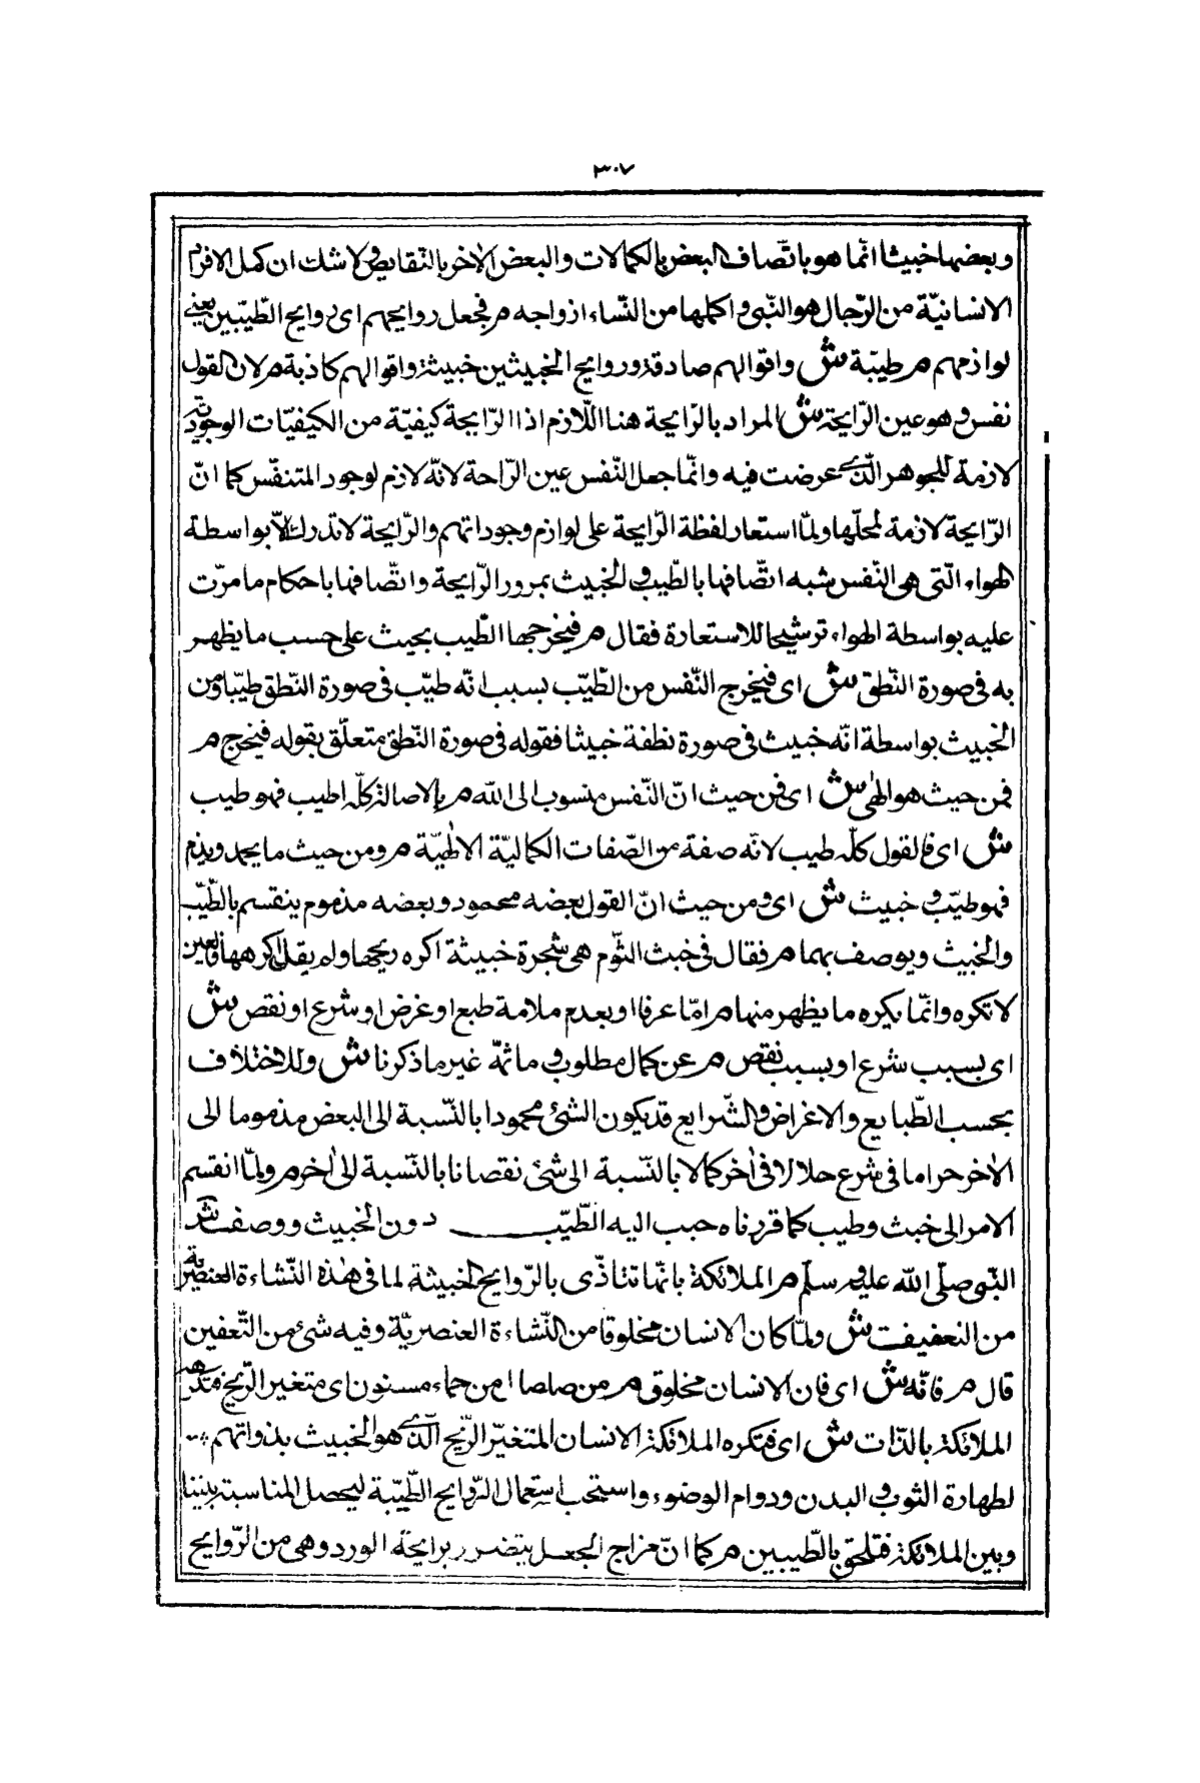 ٣٠٧
وبعضها خبيثا انّما هو باتّصاف البعض بالكمالات والبعض الاخر بالنّقايص ولا شك ان كمل الافراد
الانسانيّة من الرّجال هو النّبى واكملها من النّساء ازواجه م فجعل روايحهم اى روايح الطّيّبين يعنى
لوازمهم م طيّبة ش واقوالهم صادقة وروايح الخبيثين خبيثة واقوالهم كاذبة م لان القول
نفس وهو عين الرّايحة ش المراد بالرّايحة هنا اللّازم اذا الرّايحة كيفيّة من الكيفيّات الوجوديّة
لازمة للجوهر الّذى عرضت فيه وانّما جعل النّفس عين الرّاحة لانّه لازم لوجود المتنفّس كما انّ
الرّايحة لازمة لمحلّها ولمّا استعار لفظة الرّايحة على لوازم وجوداتهم والرّايحة لا تدرك الّا بواسطة
الهواء الّتى هى النّفس شبه اتّصافها بالطّيب والخبيث بمرور الرّايحة واتّصافها باحكام ما مرّت
عليه بواسطة الهواء ترشيحا للاستعارة فقال م فيخرجها الطّيب بحيث على حسب ما يظهر
به فى صورة النّطق ش اى فيخرج النّفس من الطّيّب بسبب انّه طيّب فى صورة النّطق طيّبا ومن
الخبيث بواسطة انّه خبيث فى صورة نطفة خبيثا فقوله فى صورة النّطق متعلّق بقوله فيخرج م
فمن حيث هو الٰهى ش اى فمن حيث انّ النّفس منسوب الى الله م بالاصالة كلّه اطيب فهو طيب
ش اى فالقول كلّه طيب لانّه صفة من الصّفات الكماليّة الالٰهيّة م ومن حيث ما يحمد ويذم
فهو طيّب وخبيث ش اى ومن حيث انّ القول بعضه محمود وبعضه مذموم ينقسم بالطّيّب
والخبيث ويوصف بهما م فقال فى خبث الثّوم هى شجرة خبيثة اكره ريحها ولم يقل اكرهها فالعين
لا تكره وانّما يكره ما يظهر منها م امّا عرفا او بعدم ملامة طبع او غرض او شرع او نقص ش
اى بسبب شرع او بسبب نقص م عن كمال مطلوب وما ثمّه غير ما ذكرنا ش وللاختلاف
بحسب الطّبايع والاغراض والشّرايع قد يكون الشئ محمودا بالنّسبة الى البعض مذموما الى
الاخر حراما فى شرع حلالا فى اٰخر كمالا بالنّسبة الى شئ نقصانا بالنّسبة الى اٰخر م ولمّا انقسم
الامر الى خبث وطيب كما قررناه حبب اليه الطّيّب دون الخبيث ووصف ش
النّبى صلّى الله عليه وسلّم م الملائكة بانّها تتاذّى بالرّوايح الخبيثة لما فى هٰذه النّشاءة العنصريّة
من التعفيفت ش ولمّا كان الانسان مخلوقا من النّشاءة العنصريّة وفيه شئ من التّعفين
قال م فانّه ش اى فان الانسان مخلوق م من صلصال من حماء مسنون اى متغير الرّيح فتكرهه
الملائكة بالذّات ش اى فتكره الملائكة الانسان المتغيّر الرّيح الّذى هو الخبيث بذواتهم
لطهارة الثوب والبدن ودوام الوضوء واستحب استعمال الرّوايح الطّيّبة ليحصل المناسبة بيننا
وبين الملائكة فتلحق بالطّيبين م كما انّ مزاج الجعل يتضرر برايحة الورد وهى من الرّوايح